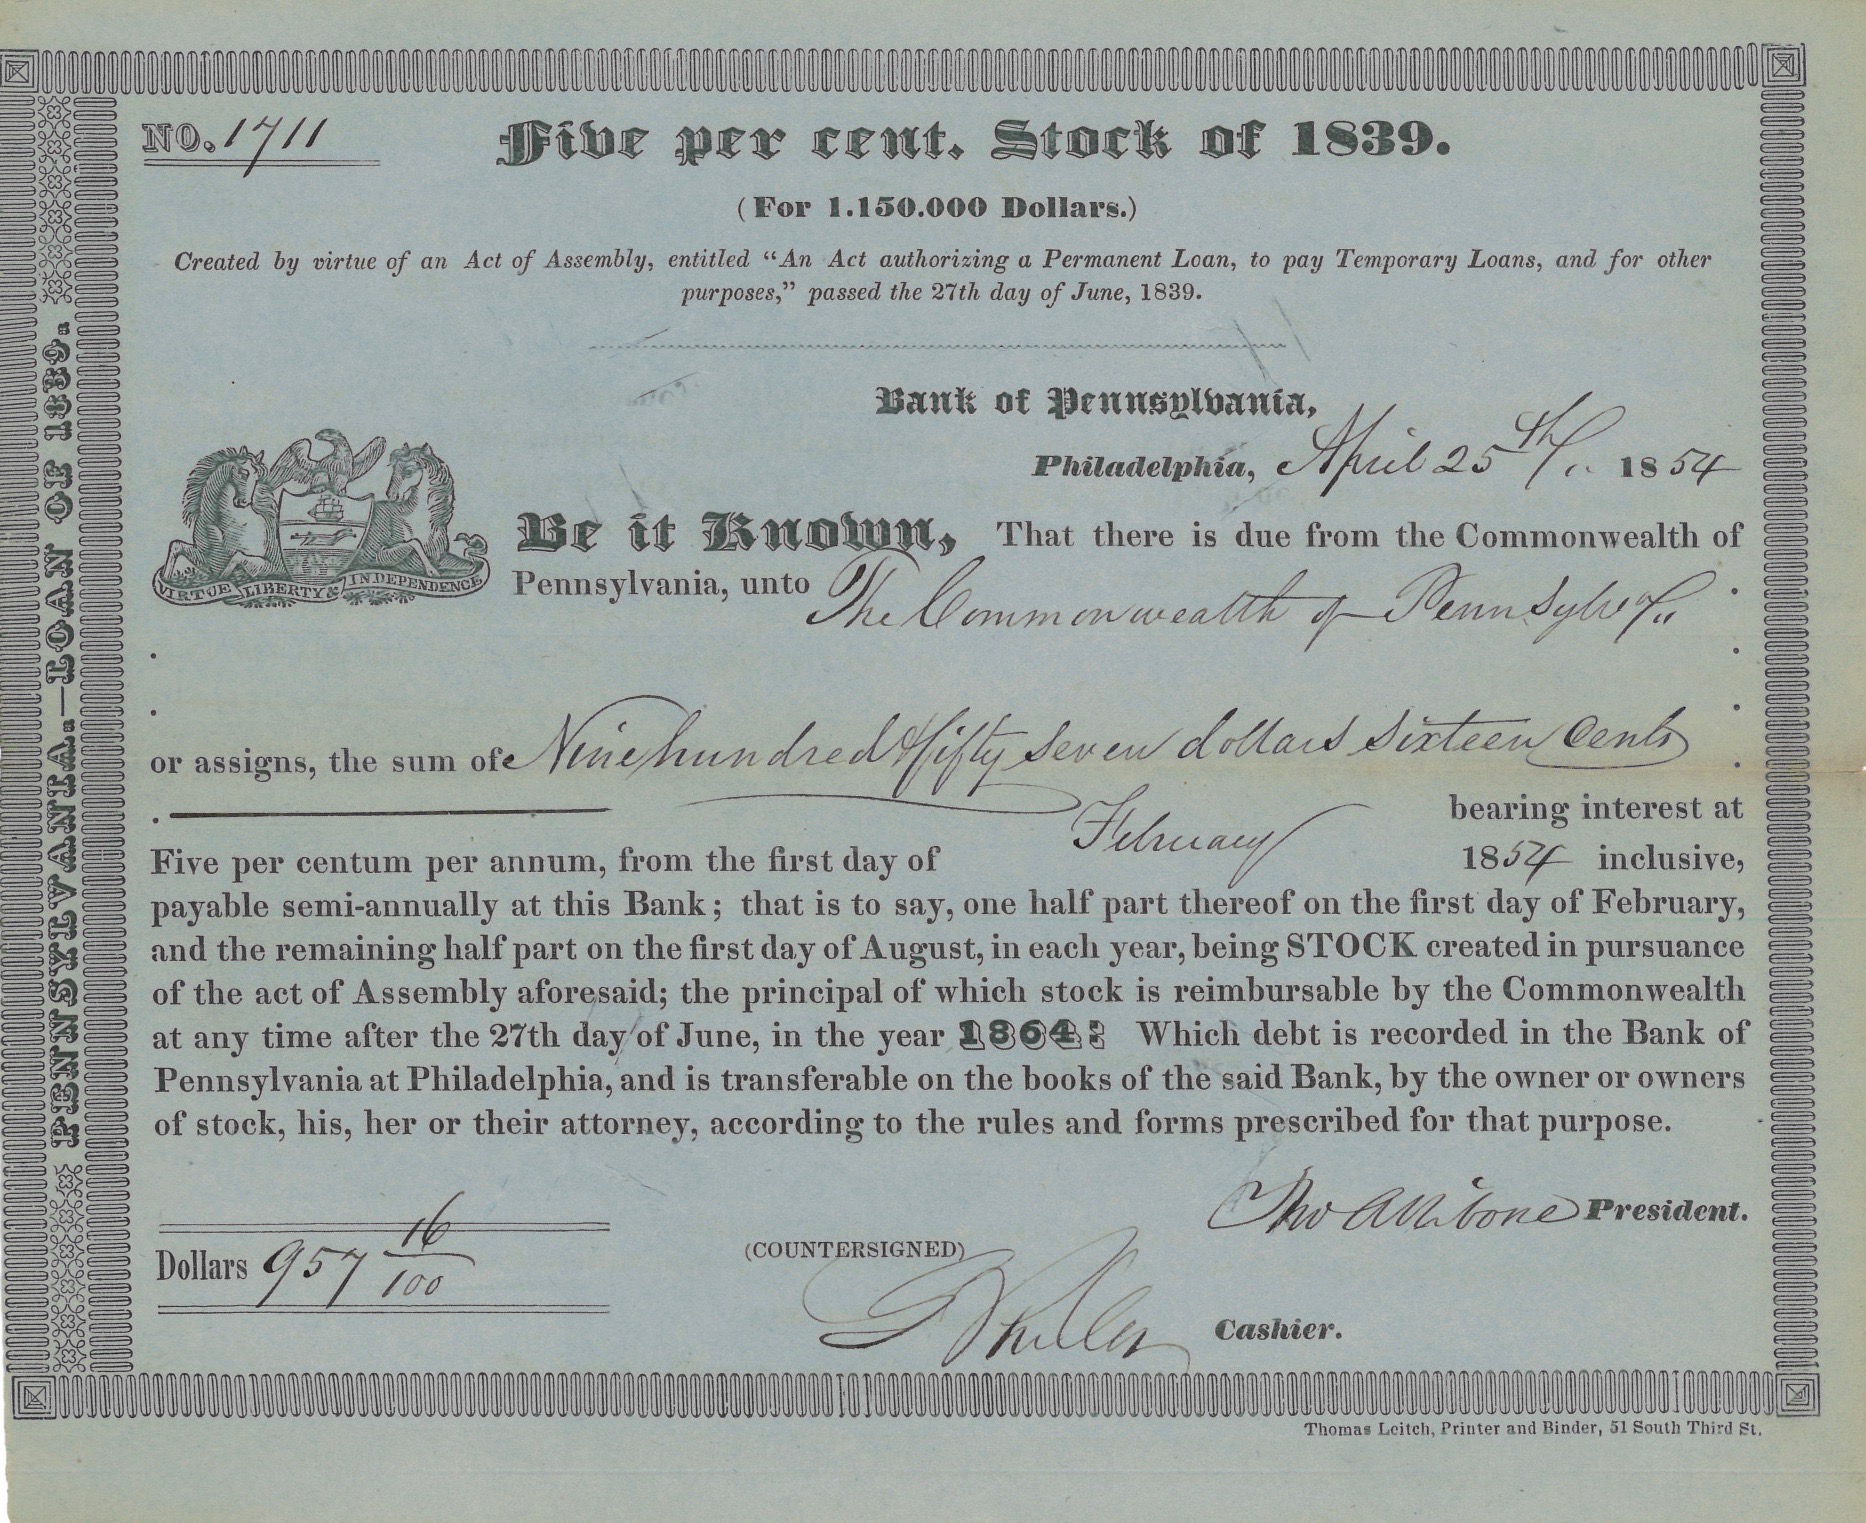 NO. 1711
Five per cent. Stock of 1839.
(For 1.150.000 Dollars.)
Created by virtue of an Act of Assembly, entitled “An Act authorizing a Permanent Loan, to pay Temporary Loans, and for other
purposes,” passed the 27th day of June, 1839.
Bank of Pennsylvania,
Philadelphia, April 25th 1854
VIRTUE LIBERTY & INDEPENDENCE
Be it Known, That there is due from the Commonwealth of
Pennsylvania, unto The Commonwealth of Pennsylva
or assigns, the sum of Nine hundred & fifty seven dollars sixteen Cents
bearing interest at
Five per centum per annum, from the first day of February 1854 inclusive,
payable semi-annually at this Bank; that is to say, one half part thereof on the first day of February,
and the remaining half part on the first day of August, in each year, being STOCK created in pursuance
of the act of Assembly aforesaid; the principal of which stock is reimbursable by the Commonwealth
at any time after the 27th day of June, in the year 1864: Which debt is recorded in the Bank of
Pennsylvania at Philadelphia, and is transferable on the books of the said Bank, by the owner or owners
of stock, his, her or their attorney, according to the rules and forms prescribed for that purpose.
Tho Allibone President.
Dollars 957 16/100
(COUNTERSIGNED)
Cashier.
Thomas Leitch, Printer and Binder, 51 South Third St.
PENNSYLVANIA.—LOAN OF 1839.